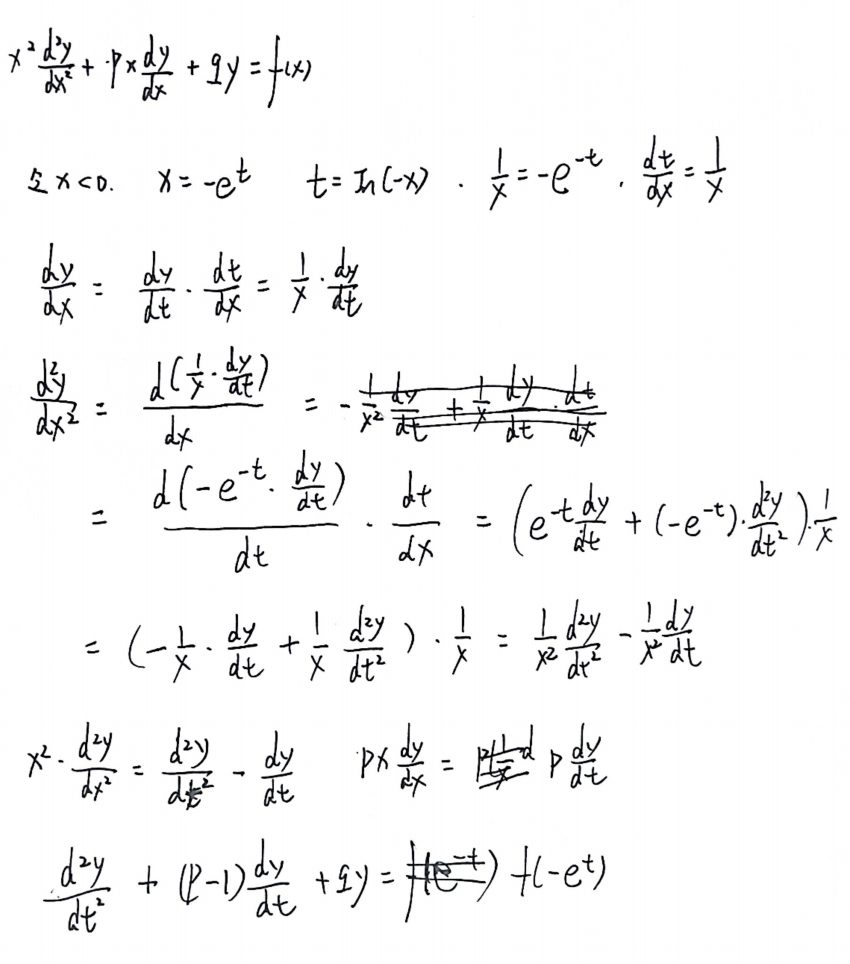 x² d²y/dx² + px dy/dx + qy = f(x)
当 x<0. x = -e^t t = ln(-x) . 1/x = -e^(-t) . dt/dx = 1/x
dy/dx = dy/dt · dt/dx = 1/x · dy/dt
d²y/dx² = d(1/x · dy/dt)/dx = - 1/x² dy/dt + 1/x dy/dt · dt/dx
= d(-e^(-t) · dy/dt)/dt · dt/dx = (e^(-t) dy/dt + (-e^(-t)) · d²y/dt²) · 1/x
= (-1/x · dy/dt + 1/x d²y/dt²) · 1/x = 1/x² d²y/dt² - 1/x² dy/dt
x² · d²y/dx² = d²y/dt² - dy/dt px dy/dx = p dy/dt
d²y/dt² + (p-1) dy/dt + qy = f(e^(-t)) f(-e^t)